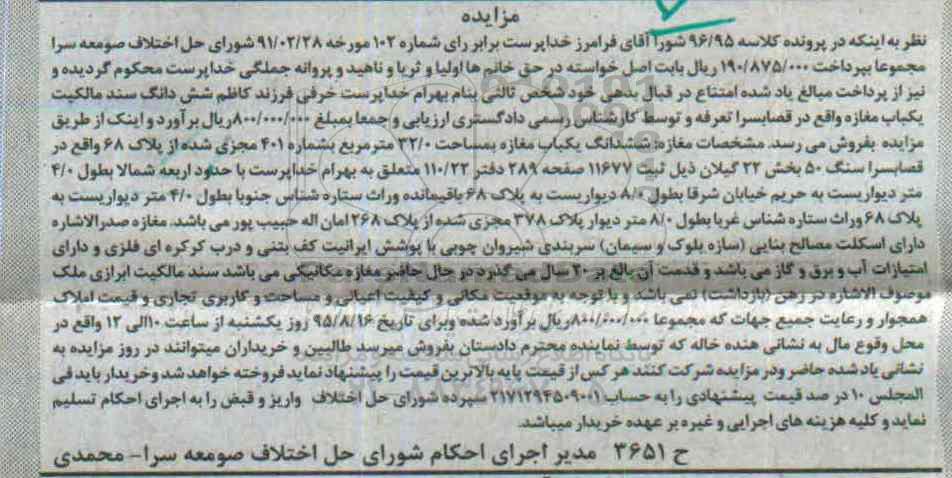 مزایده
نظر به اینکه در پرونده کلاسه ۹۶/۹۵ شورا آقای فرامرز خداپرست برابر رای شماره ۱۰۲ مورخه ۹۱/۰۲/۲۸ شورای حل اختلاف صومعه سرا
مجموعا بپرداخت ۱۹۰/۸۷۵/۰۰۰ ریال بابت اصل خواسته در حق خانم ها اولیا و ثریا و ناهید و پروانه جملگی خداپرست محکوم گردیده و
نیز از پرداخت مبالغ یاد شده امتناع در قبال بدهی خود شخص ثالثی بنام بهرام خداپرست خرفی فرزند کاظم شش دانگ سند مالکیت
یکباب مغازه واقع در قصابسرا تعرفه و توسط کارشناس رسمی دادگستری ارزیابی و جمعا بمبلغ ۸۰۰/۰۰۰/۰۰۰ ریال برآورد و اینک از طریق
مزایده بفروش می رسد. مشخصات مغازه: ششدانگ یکباب مغازه بمساحت ۳۲/۰ مترمربع بشماره ۴۰۱ مجزی شده از پلاک ۶۸ واقع در
قصابسرا سنگ ۵۰ بخش ۲۲ گیلان ذیل ثبت ۱۱۶۷۷ صفحه ۲۸۹ دفتر ۱۱۰/۲۲ متعلق به بهرام خداپرست با حدود اربعه شمالا بطول ۴/۰
متر دیواریست به حریم خیابان شرقا بطول ۸/۰ دیواریست به پلاک ۶۸ باقیمانده وراث ستاره شناس جنوبا بطول ۴/۰ متر دیواریست به
پلاک ۶۸ وراث ستاره شناس غربا بطول ۸/۰ متر دیوار پلاک ۳۷۸ مجزی شده از پلاک ۲۶۸ امان اله حبیب پور می باشد. مغازه صدرالاشاره
دارای اسکلت مصالح بنایی (سازه بلوک و سیمان) سربندی شیروان چوبی با پوشش ایرانیت کف بتنی و درب کرکره ای فلزی و دارای
امتیازات آب و برق و گاز می باشد و قدمت آن بالغ بر ۲۰ سال می گذرد در حال حاضر مغازه مکانیکی می باشد سند مالکیت ابرازی ملک
موصوف الاشاره در رهن (بازداشت) نمی باشد و با توجه به موقعیت مکانی و کیفیت اعیانی و مساحت و کاربری تجاری و قیمت املاک
همجوار و رعایت جمیع جهات که مجموعا ۸۰۰/۰۰۰/۰۰۰ ریال برآورد شده وبرای تاریخ ۹۵/۸/۱۶ روز یکشنبه از ساعت ۱۰الی ۱۲ واقع در
محل وقوع مال به نشانی هنده خاله که توسط نماینده محترم دادستان بفروش میرسد طالبین و خریداران میتوانند در روز مزایده به
نشانی یاد شده حاضر ودر مزایده شرکت کنند هر کس از قیمت پایه بالاترین قیمت را پیشنهاد نماید فروخته خواهد شد وخریدار باید فی
المجلس ۱۰ در صد قیمت پیشنهادی را به حساب ۲۱۷۱۲۹۴۵۰۹۰۰۱ سپرده شورای حل اختلاف واریز و قبض را به اجرای احکام تسلیم
نماید و کلیه هزینه های اجرایی و غیره بر عهده خریدار میباشد.
ح ۳۶۵۱ مدیر اجرای احکام شورای حل اختلاف صومعه سرا- محمدی